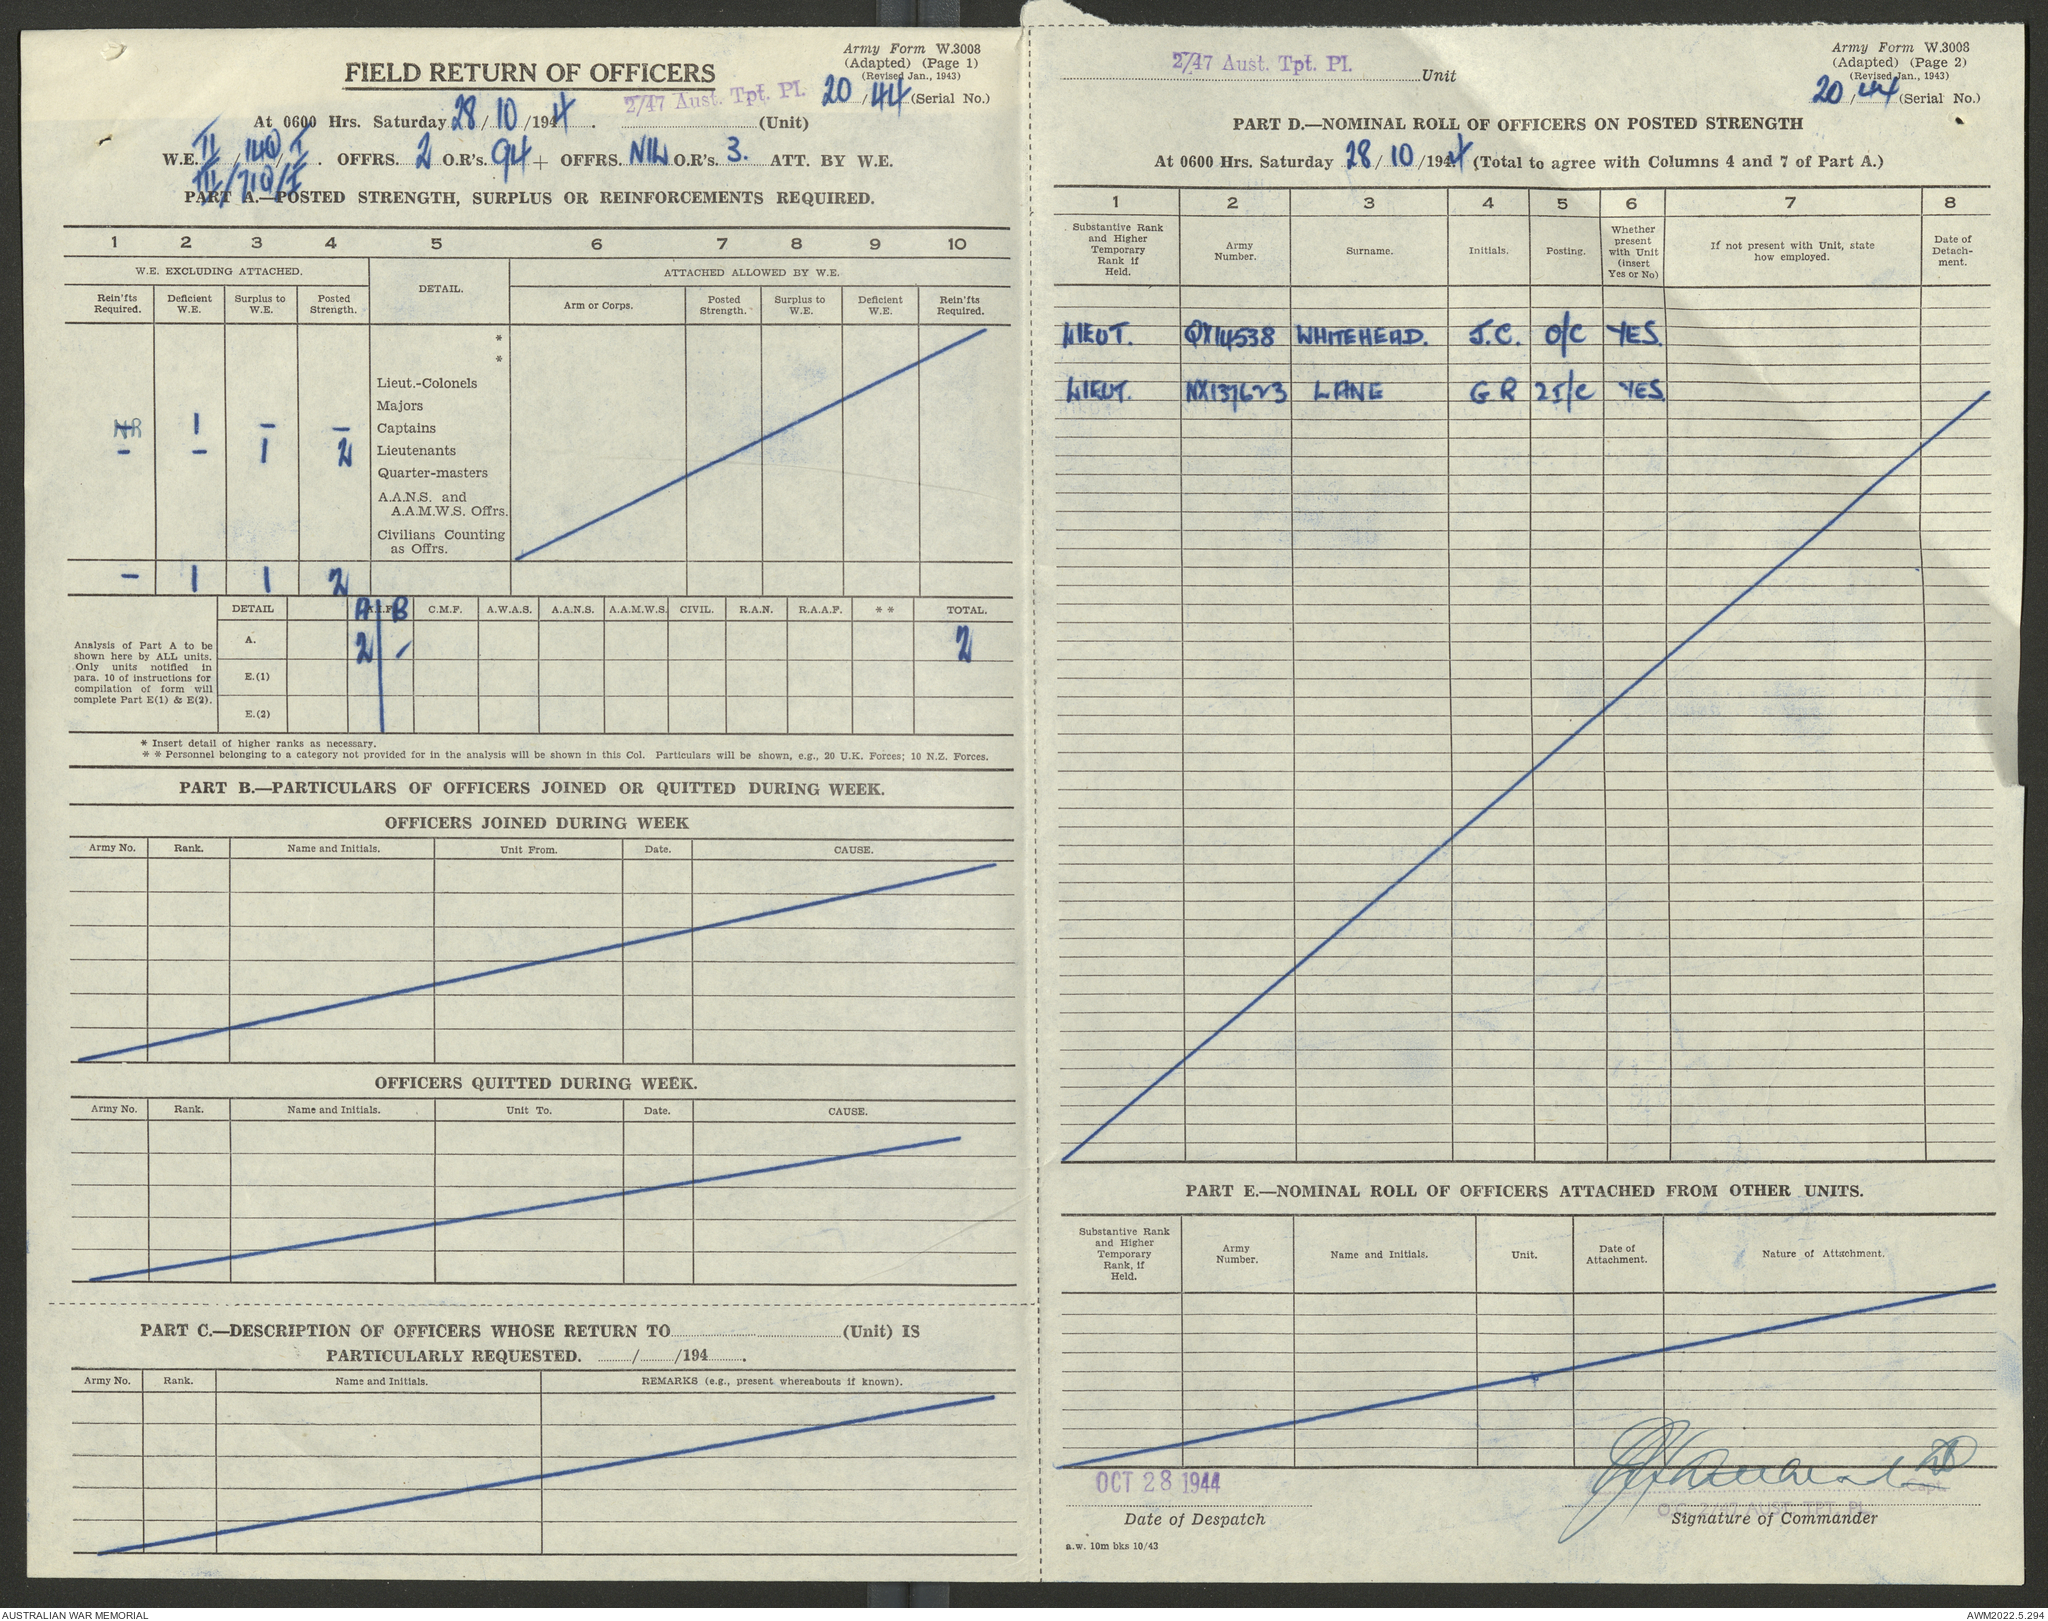 Army Form W.3008
(Adapted) (Page 1)
(Revised Jan., 1943)
FIELD RETURN OF OFFICERS
2/47 Aust. Tpt. Pl. 20/44 (Serial No.)
At 0600 Hrs. Saturday 28/10/1944. (Unit)
W.E. II/140/I. OFFRS. 2 O.R's. 94 + OFFRS. NIL O.R's. 3. ATT. BY W.E.
III/710/I
PART A.—POSTED STRENGTH, SURPLUS OR REINFORCEMENTS REQUIRED.
1 2 3 4 5 6 7 8 9 10
W.E. EXCLUDING ATTACHED. DETAIL. ATTACHED ALLOWED BY W.E.
Rein'fts Required. Deficient W.E. Surplus to W.E. Posted Strength. Arm or Corps. Posted Strength. Surplus to W.E. Deficient W.E. Rein'fts Required.
*
*
Lieut.-Colonels
Majors
NR 1 – – Captains
– – 1 2 Lieutenants
Quarter-masters
A.A.N.S. and
A.A.M.W.S. Offrs.
Civilians Counting
as Offrs.
– 1 1 2
DETAIL A.I.F. A B C.M.F. A.W.A.S. A.A.N.S. A.A.M.W.S. CIVIL. R.A.N. R.A.A.F. * * TOTAL.
A. 2 – 2
E.(1)
E.(2)
Analysis of Part A to be
shown here by ALL units.
Only units notified in
para. 10 of instructions for
compilation of form will
complete Part E(1) & E(2).
* Insert detail of higher ranks as necessary.
* * Personnel belonging to a category not provided for in the analysis will be shown in this Col. Particulars will be shown, e.g., 20 U.K. Forces; 10 N.Z. Forces.
PART B.—PARTICULARS OF OFFICERS JOINED OR QUITTED DURING WEEK.
OFFICERS JOINED DURING WEEK
Army No. Rank. Name and Initials. Unit From. Date. CAUSE.
OFFICERS QUITTED DURING WEEK.
Army No. Rank. Name and Initials. Unit To. Date. CAUSE.
PART C.—DESCRIPTION OF OFFICERS WHOSE RETURN TO (Unit) IS
PARTICULARLY REQUESTED. / /194 .
Army No. Rank. Name and Initials. REMARKS (e.g., present whereabouts if known).
Army Form W.3008
(Adapted) (Page 2)
(Revised Jan., 1943)
2/47 Aust. Tpt. Pl. Unit
20/44 (Serial No.)
PART D.—NOMINAL ROLL OF OFFICERS ON POSTED STRENGTH
At 0600 Hrs. Saturday 28/10/1944 (Total to agree with Columns 4 and 7 of Part A.)
1 2 3 4 5 6 7 8
Substantive Rank and Higher Temporary Rank if Held. Army Number. Surname. Initials. Posting. Whether present with Unit (insert Yes or No) If not present with Unit, state how employed. Date of Detach-ment.
LIEUT. QX14538 WHITEHEAD. J.C. O/C YES.
LIEUT. NX137623 LANE G R 2I/C YES
PART E.—NOMINAL ROLL OF OFFICERS ATTACHED FROM OTHER UNITS.
Substantive Rank and Higher Temporary Rank, if Held. Army Number. Name and Initials. Unit. Date of Attachment. Nature of Attachment.
OCT 28 1944
Capt.
O.C. 2/47 AUST. TPT. PL.
Date of Despatch Signature of Commander
a.w. 10m bks 10/43
AUSTRALIAN WAR MEMORIAL
AWM2022.5.294